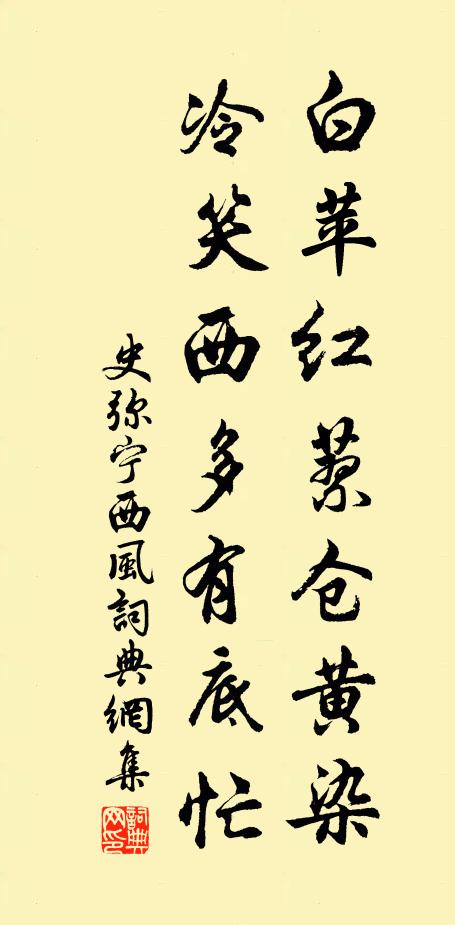 白苹红蓼仓黄染
冷笑西多有底忙
史弥宁西風詞典網集
詞典网印